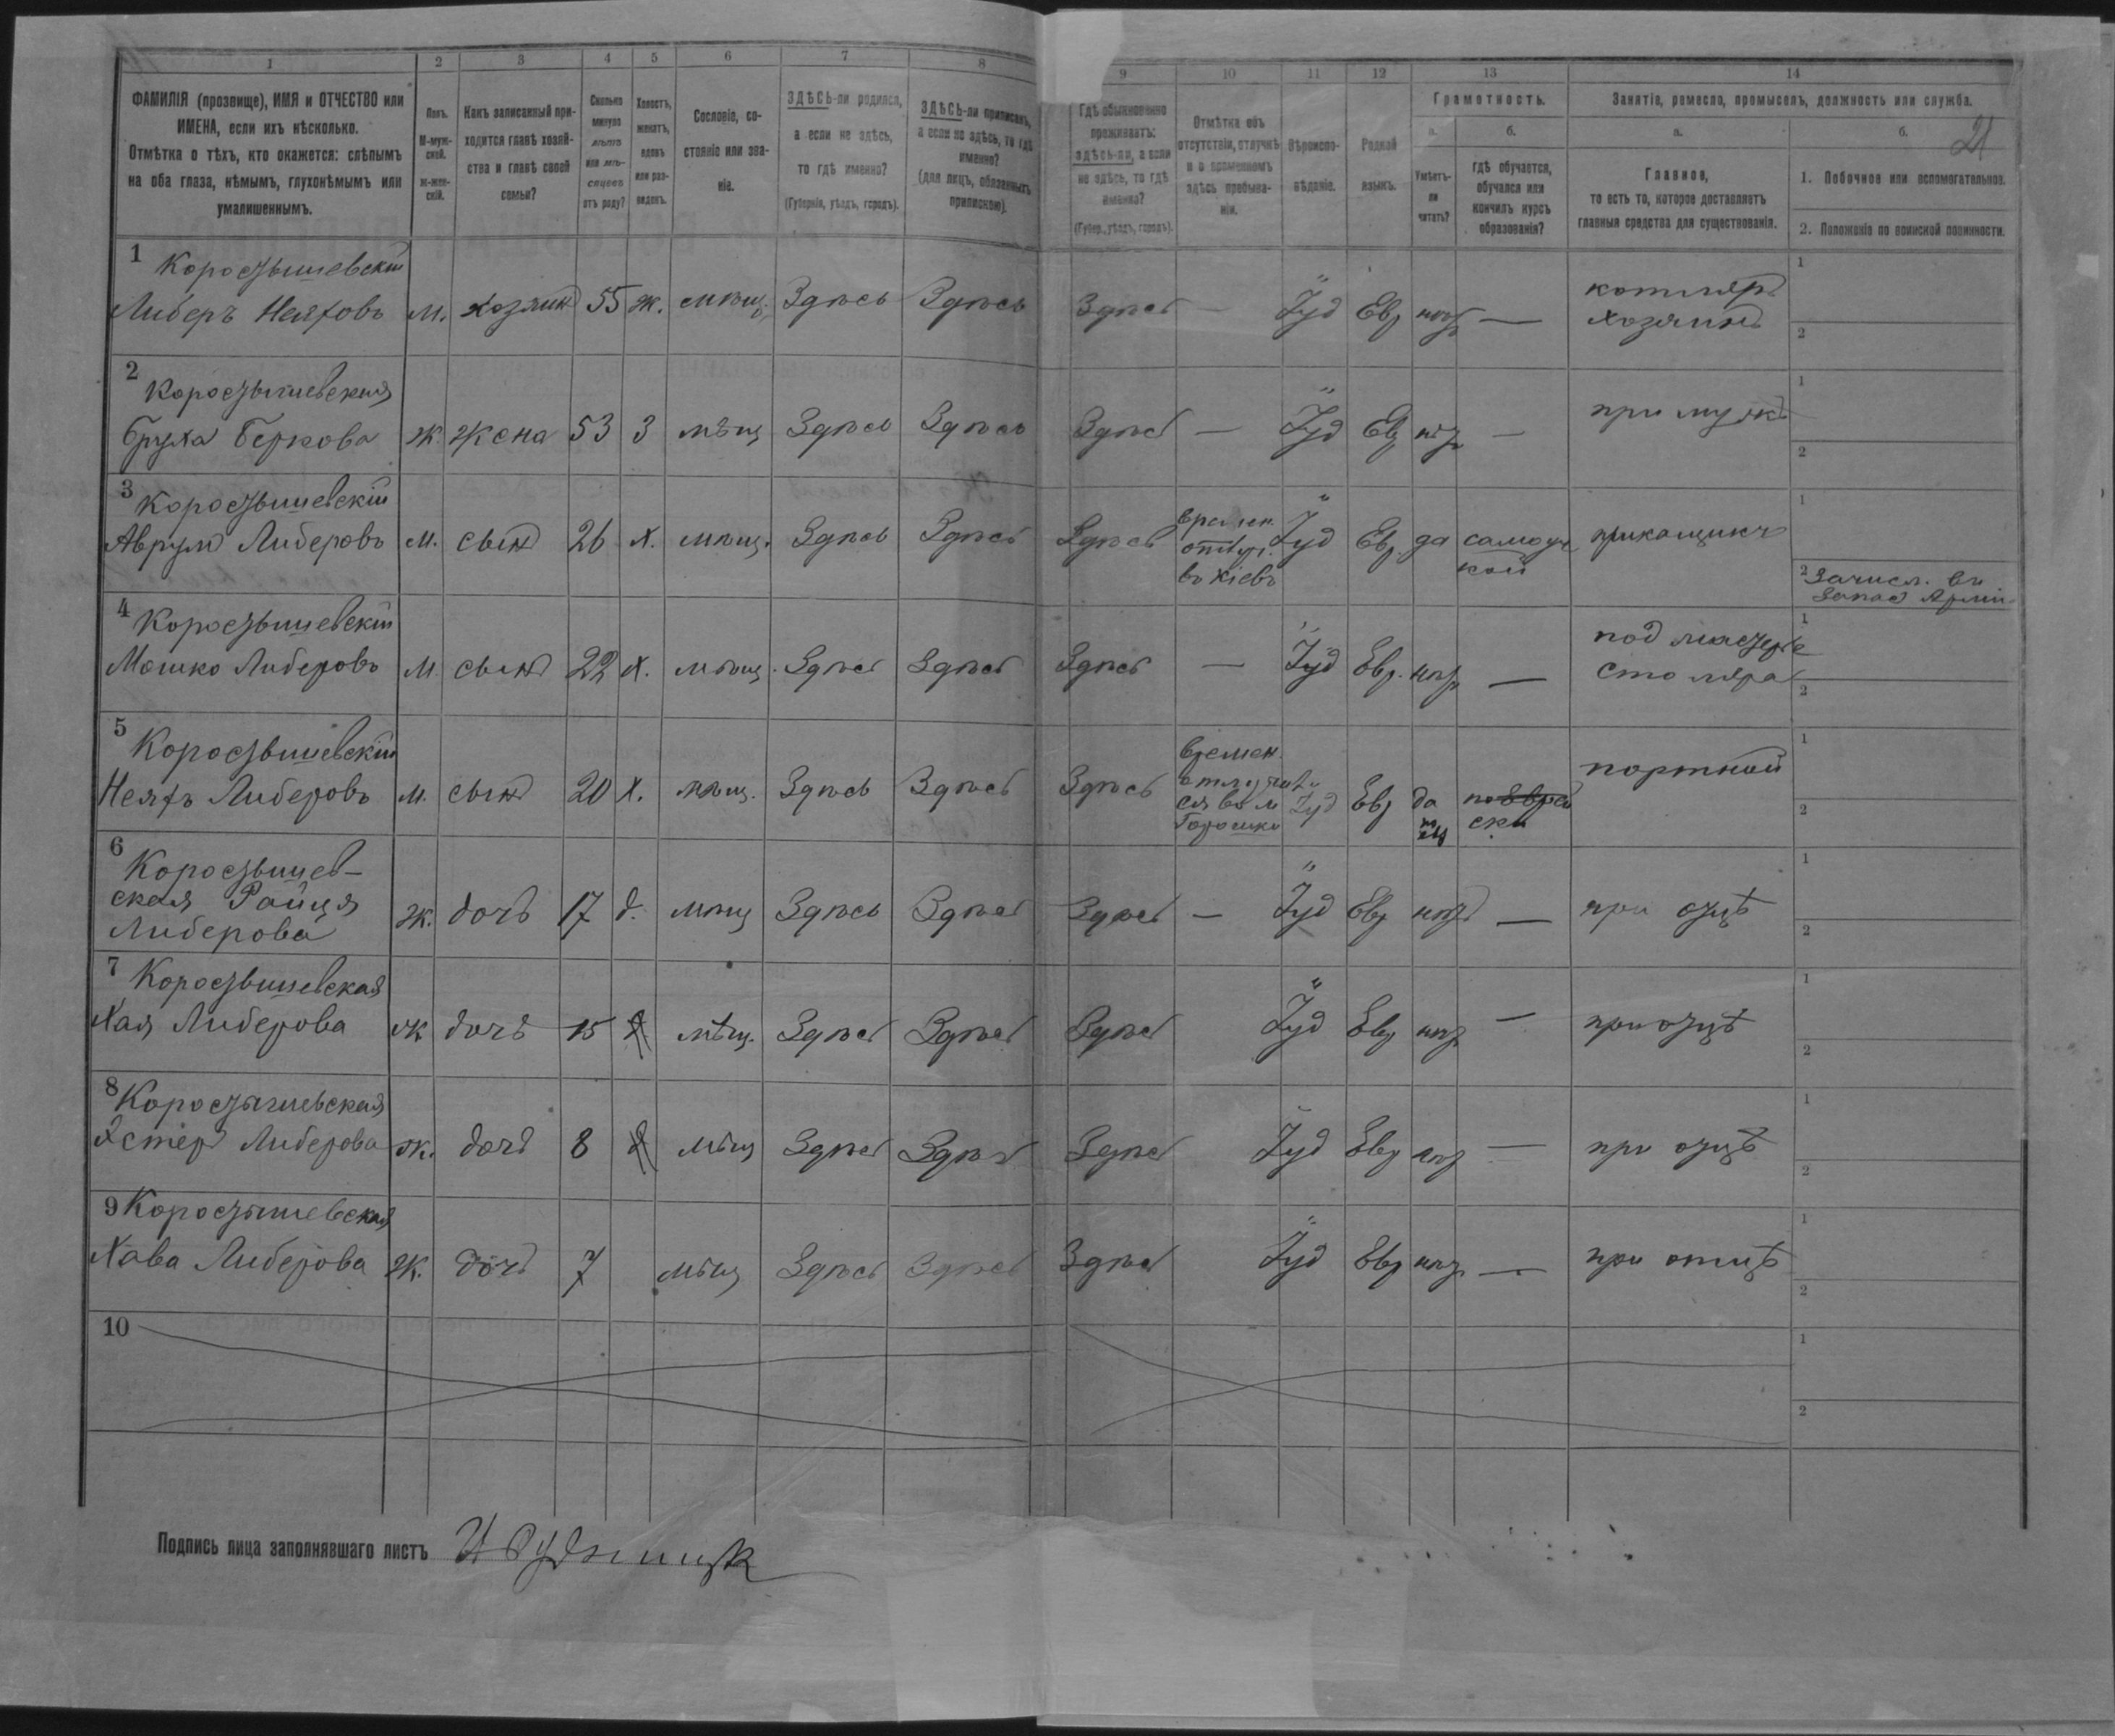 1 2 3 4 5 6 7 8 9 10 11 12 13 14
ФАМИЛІЯ (прозвище), ИМЯ и ОТЧЕСТВО или
ИМЕНА, если ихъ нѣсколько.
Отмѣтка о тѣхъ, кто окажется: слѣпымъ
на оба глаза, нѣмымъ, глухонѣмымъ или
умалишеннымъ.
Полъ.
М-муж-
ской.
ж-жен-
скій.
Какъ записанный при-
ходится главѣ хозяй-
ства и главѣ своей
семьи?
Сколько
минуло
лѣтъ
или мѣ-
сяцевъ
отъ роду?
Холостъ,
женатъ,
вдовъ
или раз-
веденъ.
Сословіе, со-
стояніе или зва-
ніе.
ЗДѢСЬ-ли родился,
а если не здѣсь,
то гдѣ именно?
(Губернія, уѣздъ, городъ).
ЗДѢСЬ-ли приписанъ,
а если не здѣсь, то гдѣ
именно?
(для лицъ, обязанныхъ
припискою).
Гдѣ обыкновенно
проживаетъ:
здѣсь-ли, а если
не здѣсь, то гдѣ
именно?
(Губер., уѣздъ, городъ).
Отмѣтка объ
отсутствіи, отлучкѣ
и о временномъ
здѣсь пребыва-
ніи.
Вѣроиспо-
вѣданіе.
Родной
языкъ.
Грамотность.
а.
Умѣетъ-
ли
читать?
б.
гдѣ обучается,
обучался или
кончилъ курсъ
образованія?
Занятіе, ремесло, промыселъ, должность или служба.
а.
Главное,
то есть то, которое доставляетъ
главныя средства для существованія.
б.
21
1. Побочное или вспомогательное.
2. Положеніе по воинской повинности.
1 Коростышевскій
Либеръ Неяховъ м. хозяинъ 55 ж. мѣщ. Здѣсь Здѣсь Здѣсь — Іуд Евр нѣтъ — котляръ
хозяинъ
1
2
2 Коростышевская
Бруха Беркова ж. жена 53 З мѣщ Здѣсь Здѣсь Здѣсь — Іуд Евр нѣтъ — при мужѣ
1
2
3 Коростышевскій
Аврумъ Либеровъ м. сынъ 26 х. мѣщ. Здѣсь Здѣсь Здѣсь времен.
отлуч.
въ Кіевъ
Іуд Евр. да самоуч
кой
прикащикъ
1
2 Зачисл. въ
запас Арміи
4 Коростышевскій
Мошко Либеровъ м. сынъ 22 х. мѣщ. Здѣсь Здѣсь Здѣсь — Іуд Евр. нѣтъ — под мастерье
столяра
1
2
5 Коростышевскій
Неяхъ Либеровъ м. сынъ 20 х. мѣщ. Здѣсь Здѣсь Здѣсь времен.
отлучив
ся въ м
Горошки
Іуд Евр да по Еврей
ски
портной
1
2
6 Коростышев-
ская Райця
Либерова ж. дочь 17 д. мѣщ Здѣсь Здѣсь Здѣсь — Іуд Евр нѣтъ — при отцѣ
1
2
7 Коростышевская
Хая Либерова ж дочь 15 мѣщ. Здѣсь Здѣсь Здѣсь Іуд Евр нѣтъ — при отцѣ
1
2
8 Коростышевская
Эстер Либерова ж. дочь 8 мѣщ Здѣсь Здѣсь Здѣсь Іуд Евр нѣтъ — при отцѣ
1
2
9 Коростышевская
Хава Либерова ж. дочь 7 мѣщ Здѣсь Здѣсь Здѣсь Іуд Евр нѣтъ — при отцѣ
1
2
10
1
2
Подпись лица заполнявшаго листъ